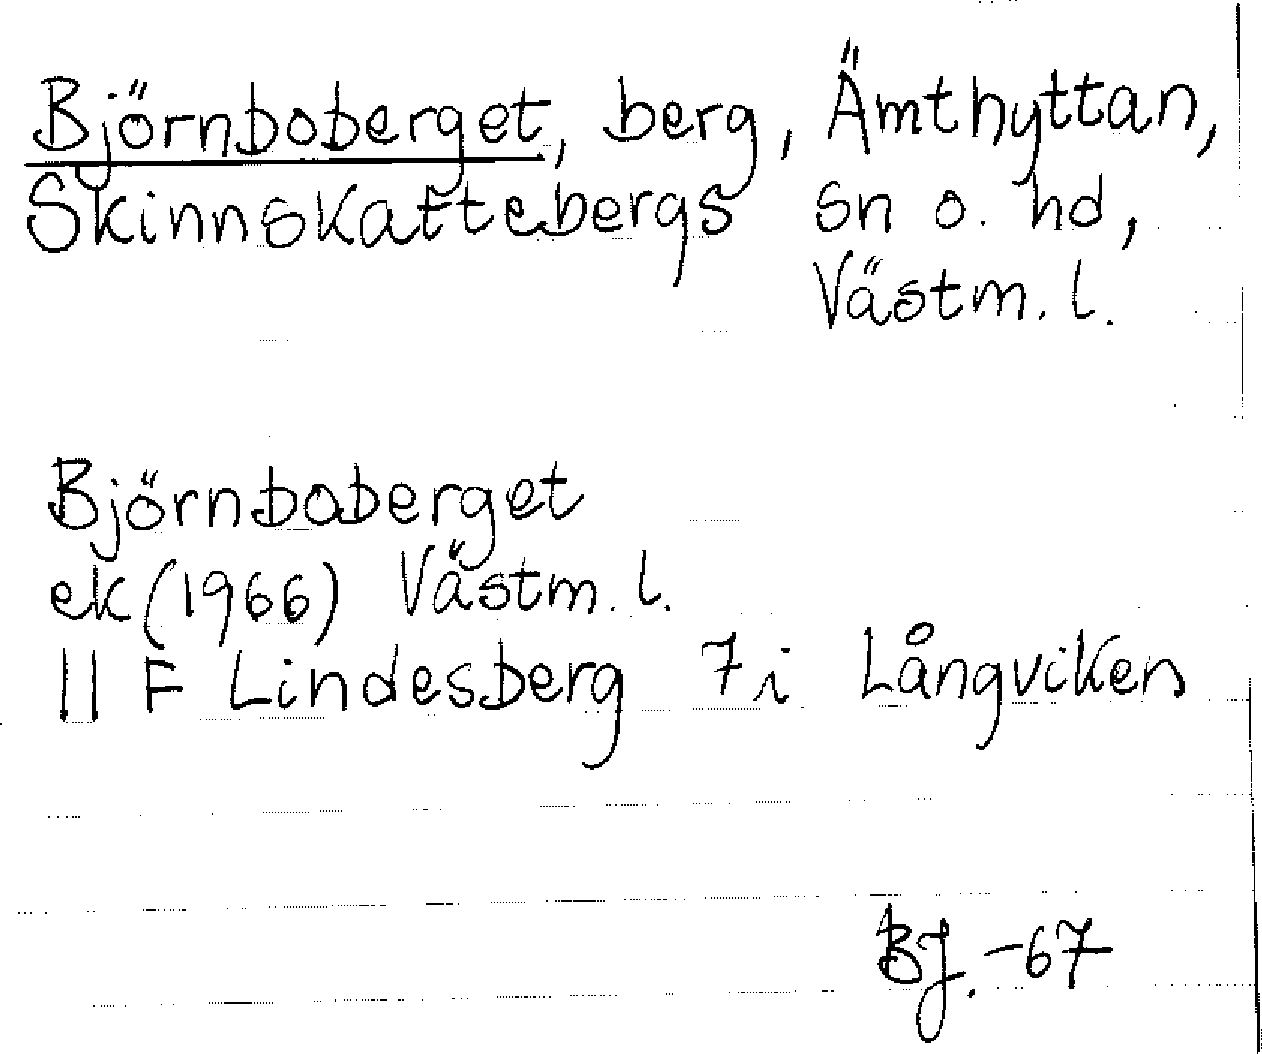 Björnboberget, berg, Ämthyttan,
Skinnskattebergs sn o. hd,
Västm. l.
Björnboberget
ek (1966) Västm. l.
11 F Lindesberg 7i Långviken
BJ. -67